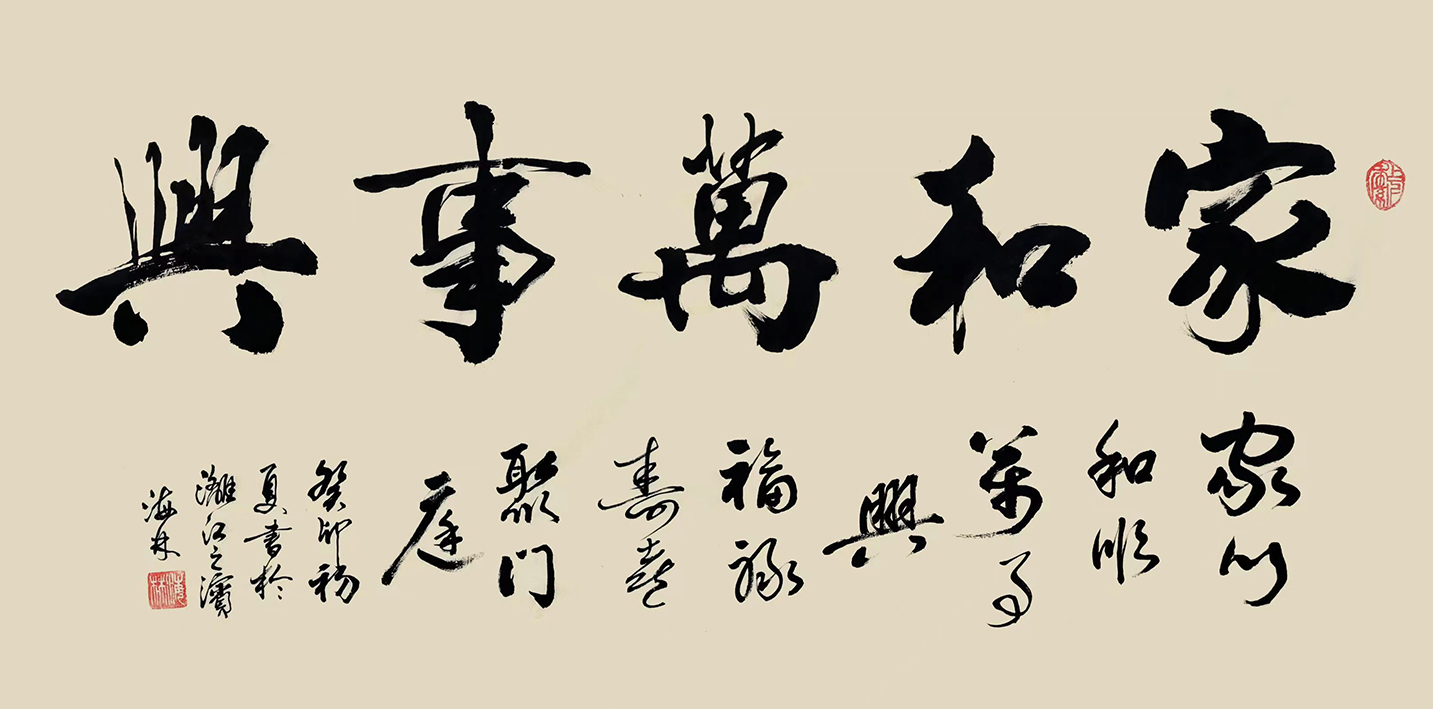 家和萬事興
家以
和順
萬事
興
福祿
壽喜
聚门
庭
癸卯初
夏書於
灕江之濱
海林
海林